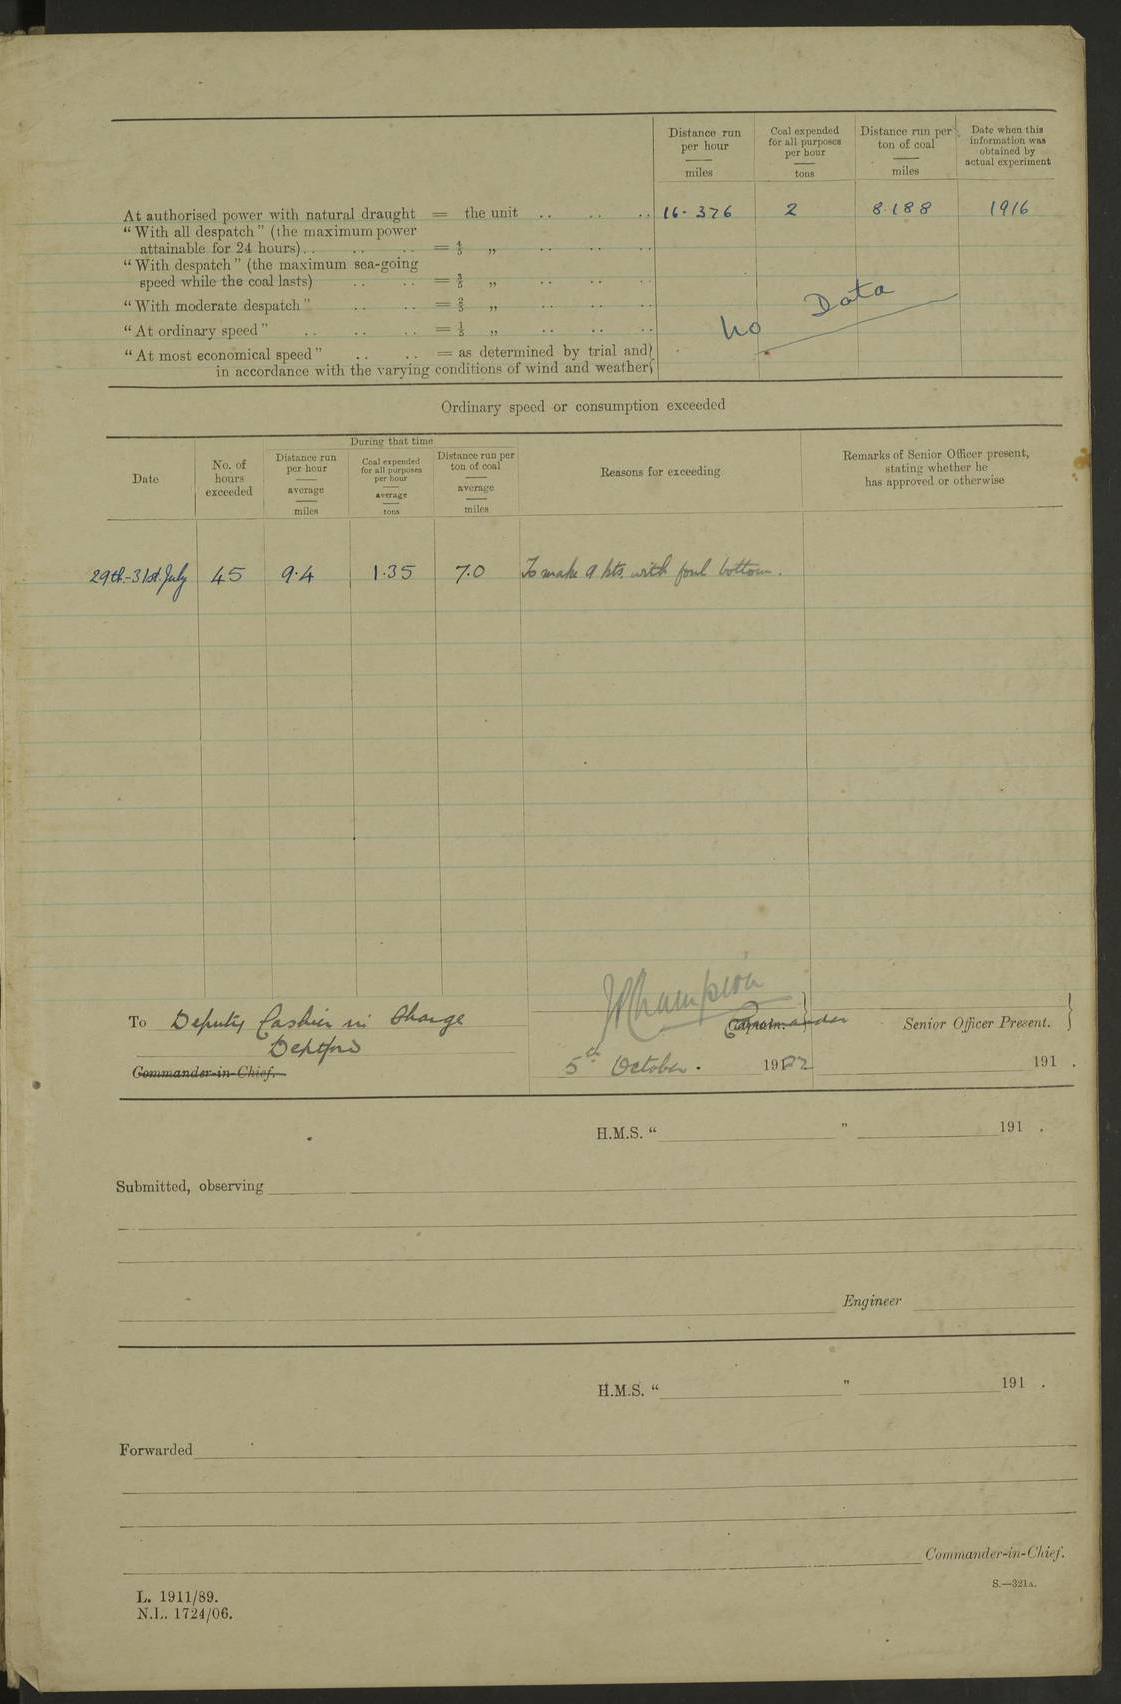 Distance run per hour — miles
Coal expended for all purposes per hour — tons
Distance run per ton of coal — miles
Date when this information was obtained by actual experiment
At authorised power with natural draught = the unit .. .. .. 16.376 2 8.188 1916
"With all despatch" (the maximum power
attainable for 24 hours) .. .. .. = 4/5 „ .. .. ..
"With despatch" (the maximum sea-going
speed while the coal lasts) .. .. = 3/5 „ .. .. ..
"With moderate despatch" .. .. = 2/5 „ .. .. ..
"At ordinary speed" .. .. .. = 1/5 „ .. .. ..
No Data
"At most economical speed" .. .. = as determined by trial and
in accordance with the varying conditions of wind and weather
Ordinary speed or consumption exceeded
Date
No. of hours exceeded
During that time
Distance run per hour — average — miles
Coal expended for all purposes per hour — average — tons
Distance run per ton of coal — average — miles
Reasons for exceeding
Remarks of Senior Officer present, stating whether he has approved or otherwise
29th-31st July 45 9.4 1.35 7.0 To make 9 kts. with foul bottom.
JRChampion
To Deputy Cashier in Charge
Captain. Commander
Senior Officer Present.
Deptford
Commander-in-Chief.
5th October. 1922
191 .
H.M.S. " " 191 .
Submitted, observing
Engineer
H.M.S. " " 191 .
Forwarded
Commander-in-Chief.
S.—321A.
L. 1911/89.
N.L. 1724/06.